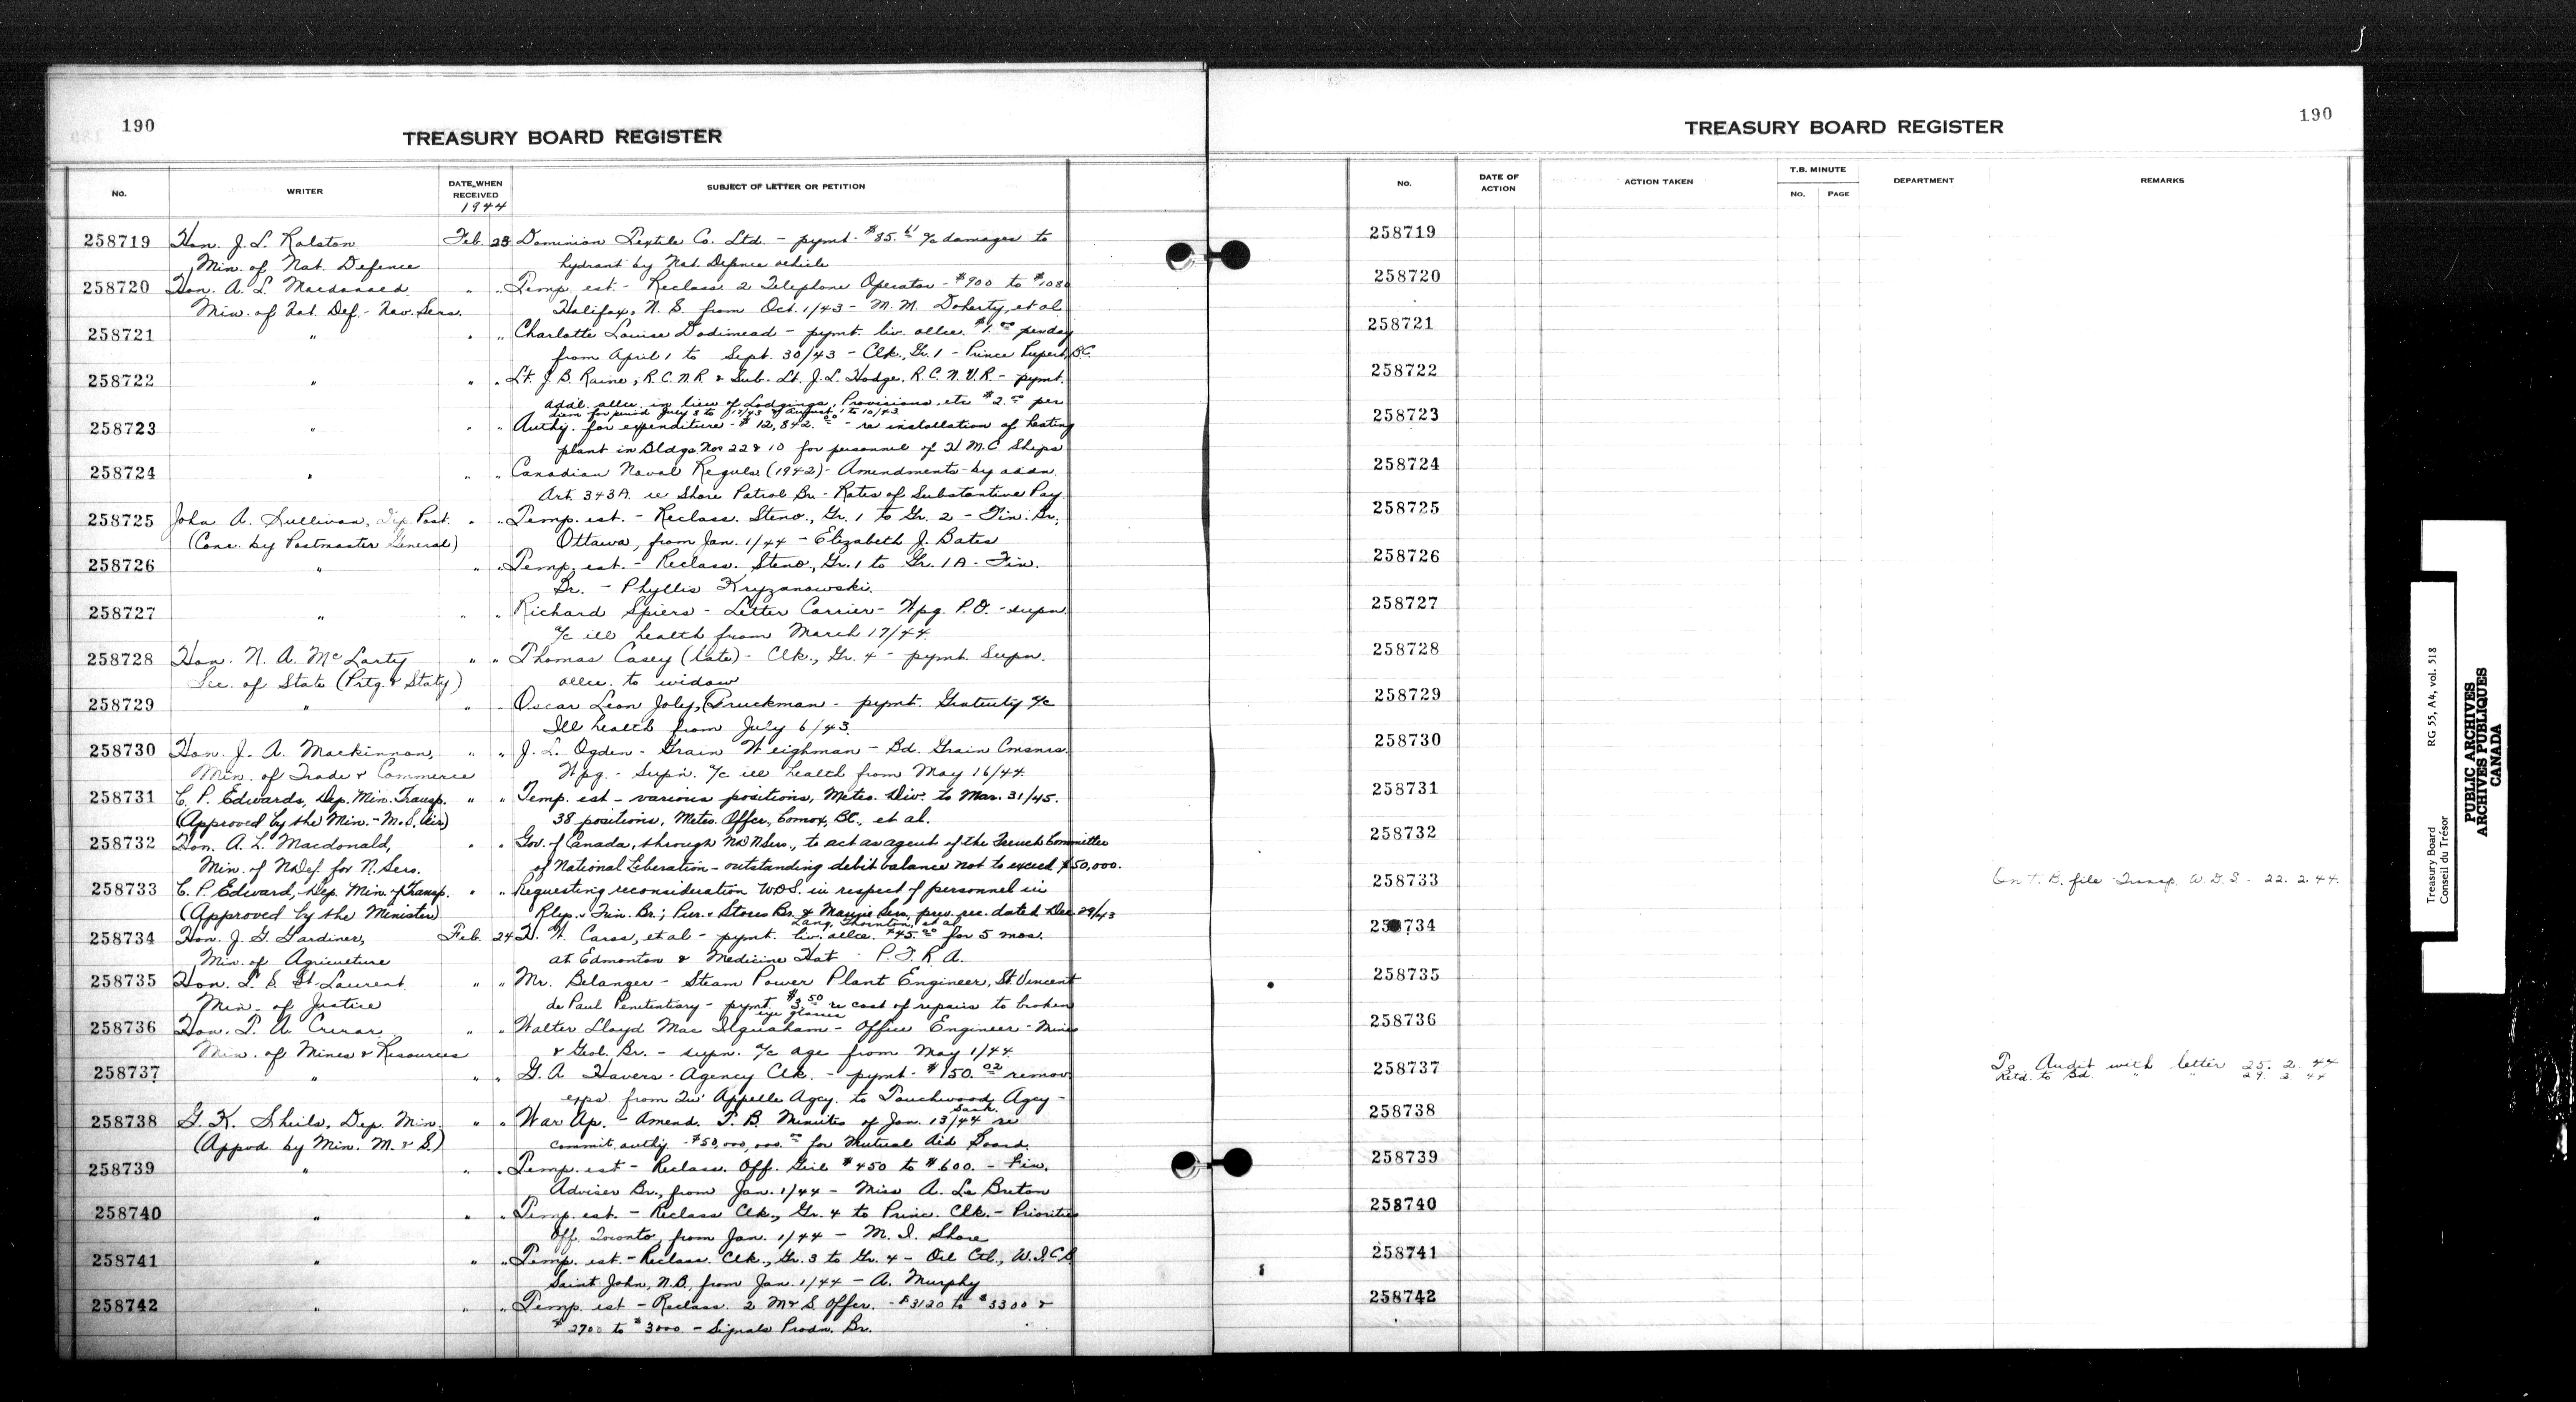 190
TREASURY BOARD REGISTER
No.
WRITER
DATE WHEN RECEIVED
1944
SUBJECT OF LETTER OR PETITION
258719 Hon. J. L. Ralston Feb. 23 Dominion Textile Co. Ltd. - pymt. $85.61 a/c damages to
Min. of Nat. Defence hydrant by Nat. Defence vehicle
258720 Hon. A. L. Macdonald " " Temp. est. - Reclass 2 Telephone Operator - $900 to $1080
Min. of Nat. Def. - Nav. Serv. Halifax, N. S. from Oct. 1/43 - M. M. Doherty, et al
258721 " " " Charlotte Louise Dodimead - pymt. liv. allce. $1.00 per day
from April 1 to Sept. 30/43 - Clk., Gr. 1 - Prince Rupert, B.C.
258722 " " " Lt. J. B. Raine, R.C.N.R. & Sub. Lt. J. L. Hodge, R.C.N.V.R. - pymt.
addl. allce. in lieu of Lodgings, Provisions, etc $2.00 per
diem for period July 3 to 17/43 & August 1 to 10/43
258723 " " " Authy. for expenditure - $12,842.00 - re installation of heating
plant in Bldgs. Nos 22 & 10 for personnel of H.M.C. Ships
258724 " " " Canadian Naval Reguls. (1942) - Amendments by addn.
Art. 343A. re Shore Patrol Br. - Rates of Substantive Pay.
258725 John A. Sullivan, Dep. Post. " " Temp. est. - Reclass. Steno., Gr. 1 to Gr. 2 - Fin. Br.,
(Conc. by Postmaster General) Ottawa, from Jan. 1/44 - Elizabeth J. Bates
258726 " " " Temp. est. - Reclass. Steno., Gr. 1 to Gr. 1A - Fin.
Br. - Phyllis Kryzanowski.
258727 " " " Richard Spiers - Letter Carrier - Wpg. P.O. - supn.
a/c ill health from March 17/44.
258728 Hon. N. A. McLarty " " Thomas Casey (late) - Clk., Gr. 4 - pymt. Supn.
Sec. of State (Prtg. & Staty) allce. to widow
258729 " " " Oscar Leon Joly, Truckman - pymt. Gratuity a/c
Ill health from July 6/43.
258730 Hon. J. A. Mackinnon, " " J. L. Ogden - Grain Weighman - Bd. Grain Cmsnrs.
Min. of Trade & Commerce Wpg. - Supn. a/c ill health from May 16/44.
258731 C. P. Edwards, Dep. Min. Transp. " " Temp. est - various positions, Meteo. Div. to Mar. 31/45.
(Approved by the Min. - M. S. Air) 38 positions, Meteo. Offcr., Comox, BC., et al.
258732 Hon. A. L. Macdonald, " " Gov. of Canada, through ND NServ., to act as agent of the French Committee
Min. of N. Def. for N. Serv. of National Liberation - outstanding debit balance not to exceed $50,000.
258733 C. P. Edward, Dep. Min. of Transp. " " Requesting reconsideration W.D.S. in respect of personnel in
(Approved by the Minister) Rlys. & Fin. Br.; Pur. & Stores Br. & Marine Serv. prev. rec. dated Dec 29/43
Lang, Thornton, et al
258734 Hon. J. G. Gardiner, Feb. 24 H. W. Cass, et al - pymt. liv. allce. $45.00 for 5 mos.
Min. of Agriculture at Edmonton & Medicine Hat - P.F.R.A.
258735 Hon. L. S. St. Laurent " " Mr. Belanger - Steam Power Plant Engineer, St. Vincent
Min. of Justice de Paul Penitentiary - pymt. $3.50 re cost of repairs to broken
eye glasses
258736 Hon. T. A. Crerar " " Walter Lloyd Mac Ilquaham - Office Engineer - Mines
Min. of Mines & Resources & Geol. Br. - supn. a/c age from May 1/44.
258737 " " " G. A. Havers - Agency Clk. - pymt. $150.02 remov.
exps. from Qu'Appelle Agcy. to Touchwood Agcy -
Sask.
258738 G. K. Sheils, Dep. Min. " " War Ap. - Amend. T. B. Minutes of Jan. 13/44 re
(Appvd by Min. M. & S.) commit. authy - $50,000,000.00 for Mutual Aid Board.
258739 " " " Temp. est - Reclass. Off. Girl $450 to $600. - Fin.
Adviser Br., from Jan. 1/44 - Miss A. Le Breton
258740 " " " Temp. est. - Reclass Clk., Gr. 4 to Princ. Clk. - Priorities
Off. Toronto, from Jan. 1/44 - M. I. Shore
258741 " " " Temp. est - Reclass. Clk., Gr. 3 to Gr. 4 - Oil Ctl., W.I.C.B.
Saint John, N.B., from Jan. 1/44 - A. Murphy
258742 " " " Temp. est - Reclass. 2 M & S Offcr. - $3120 to $3300 &
$2700 to $3000 - Signals Prodn. Br.
190
TREASURY BOARD REGISTER
No.
DATE OF ACTION
ACTION TAKEN
T.B. MINUTE
No.
PAGE
DEPARTMENT
REMARKS
258719
258720
258721
258722
258723
258724
258725
258726
258727
258728
258729
258730
258731
258732
258733 On T. B. file Transp. W.D.S. - 22. 2. 44.
258734
258735
258736
258737 To Audit with letter 25. 2. 44
Retd. to Bd. " " 29. 2. 44
258738
258739
258740
258741
258742
Treasury Board
Conseil du Trésor
RG 55, A4, vol. 518
PUBLIC ARCHIVES
ARCHIVES PUBLIQUES
CANADA